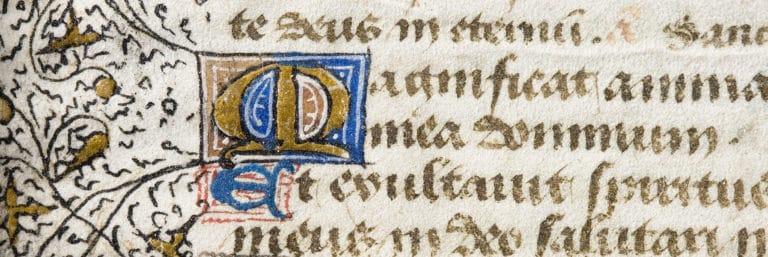 te deus in eternū. a Sanc
Magnificat anima
mea dominum.
Et exultauit spiritus
meus in deo salutari